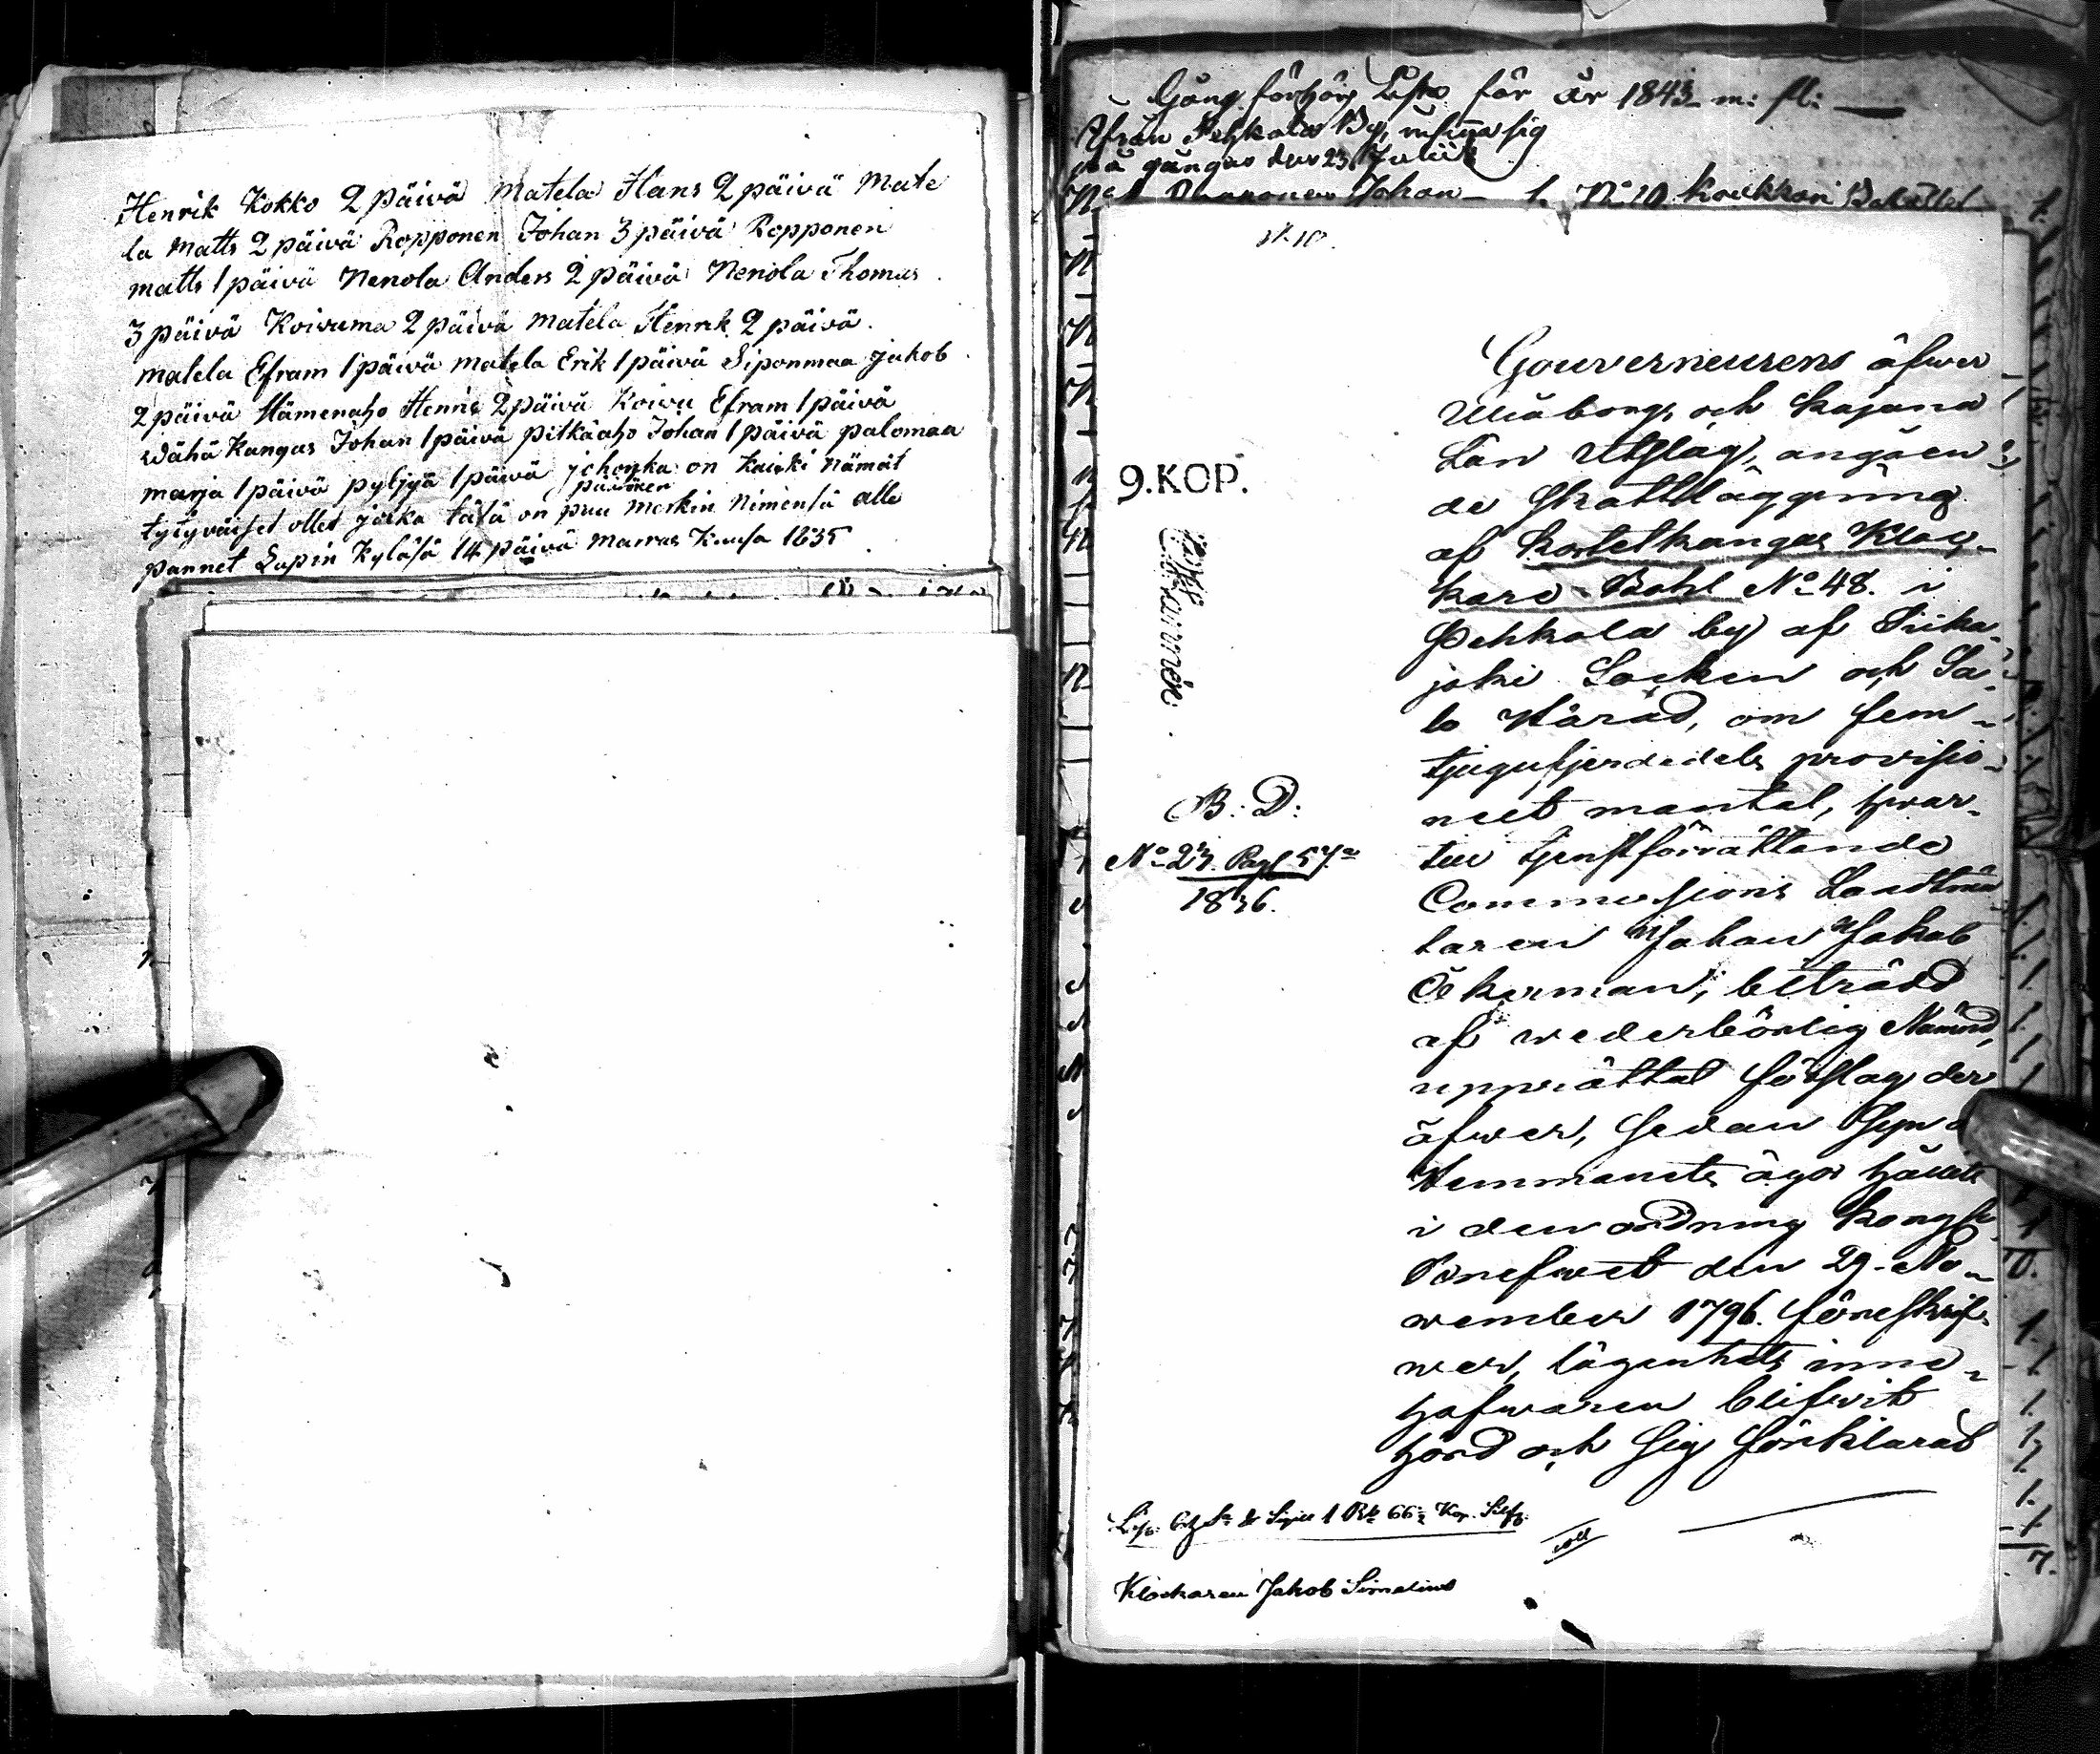 Henrik Kokko 2 päivä Matela Hans 2 päivä Mate
la Matts 2 päivä Ropponen Johan 3 päivä Ropponen
matts 1 päivä Nenola Anders 2 päivä Nenola Thomas
3 päivä Koivuma 2 päivä Matela Henrik 2 päivä
matela Efram 1 päivä Matela Erik 1 päivä Siponmaa Jakob
2 päivä Hämenaho 2 päivä Koivu Efram 1 päivä
wähä Kangas Johan 1 päivä pitkäaho Johan 1 päivä palomaa
marja 1 päivä pyljyä 1 päivä johonka on Kaikki Nämät
päiväxen
tytyväiset ollet jotka täsä on puu Merkin Nimensä alle
pannet Lapin Kyläsä 14 päivä Marras Kuusa 1835
för år 1843 m: fl:
Ifrån Pehkola By, infinna sig
på gångas den 23. Julii
Johan 1. No 10
No 10.
Gouverneurens öfwer
Uleåborgs och Kajana
Län Utslag, angåen-
de Skattläggning
af Kortetkangas Kloc-
kare-Bohl No 48. i
Pehkola by af Siika-
joki Socken och Sa-
lo Härad, om fem
tjugufjerdedels provisio-
neet mantal, hwar-
till tjenstförrättande
Commissions Landtmä-
taren Johan Jakob
Åkerman, biträdd
af wederbörlig Nämnd,
upprättat förslag der
öfwer, sedan Syn å
Hemmanets ägor hållits
i den ordning Kongl.
Brefwet den 29. No-
wember 1796. föreskrif-
wer, lägenhets inne-
hafwaren blifwit
hörd och sig förklarat
9. KOP.
B: D:
No 23. Pag 57.
1836.
Sigill 1 Rb 66 Kop. Silf.
Klockaren Jakob Simelius